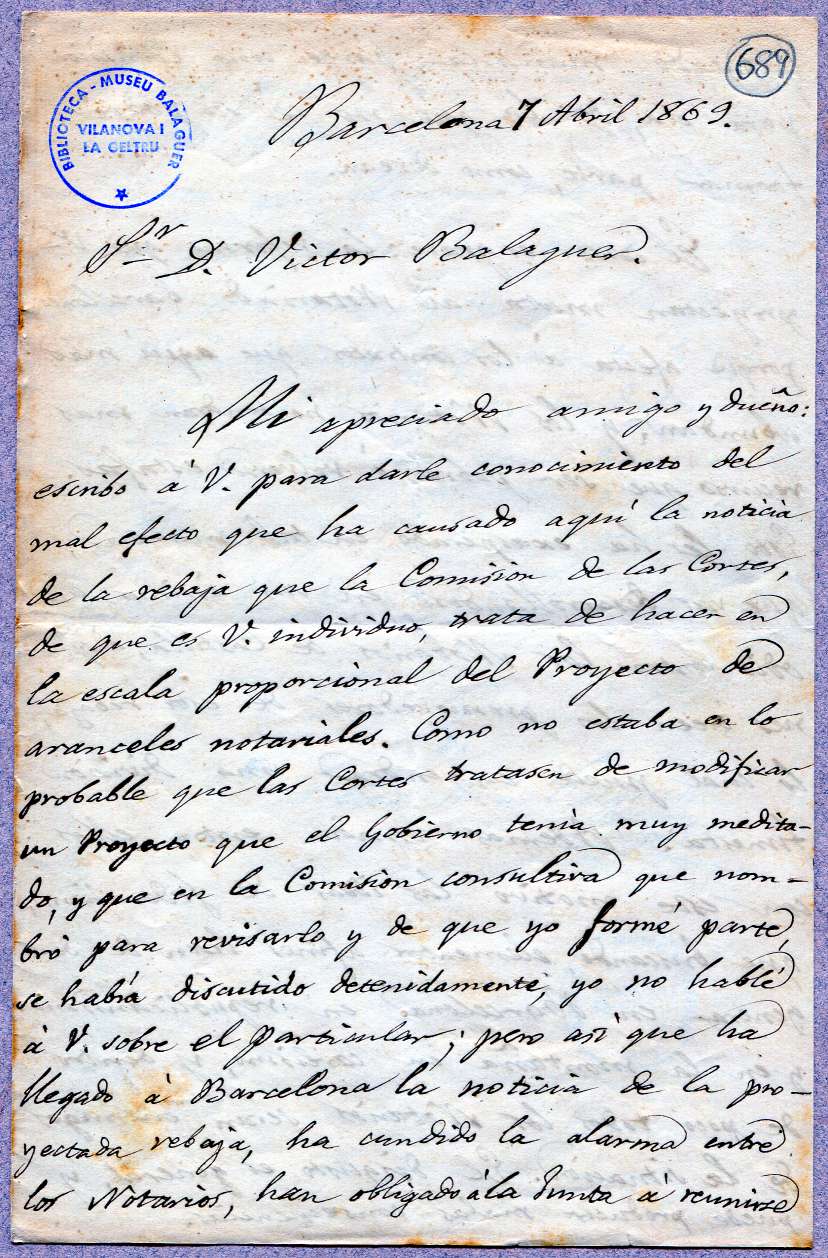 689
BIBLIOTECA - MUSEU BALAGUER
VILANOVA I
LA GELTRU
Barcelona 7 Abril 1869.
Sr. D. Victor Balaguer.
Mi apreciado amigo y dueño:
escribo á V. para darle conocimiento del
mal efecto que ha causado aquí la noticia
de la rebaja que la Comision de las Cortes,
de que es V. individuo, trata de hacer en
la escala proporcional del Proyecto de
aranceles notariales. Como no estaba en lo
probable que las Cortes tratasen de modificar
un Proyecto que el Gobierno tenia muy medita-
do, y que en la Comision consultiva que nom-
bró para revisarlo y de que yo formé parte,
se habia discutido detenidamente, yo no hablé
á V. sobre el particular; pero así que ha
llegado á Barcelona la noticia de la pro-
yectada rebaja, ha cundido la alarma entre
los Notarios, han obligado á la Junta á reunirse